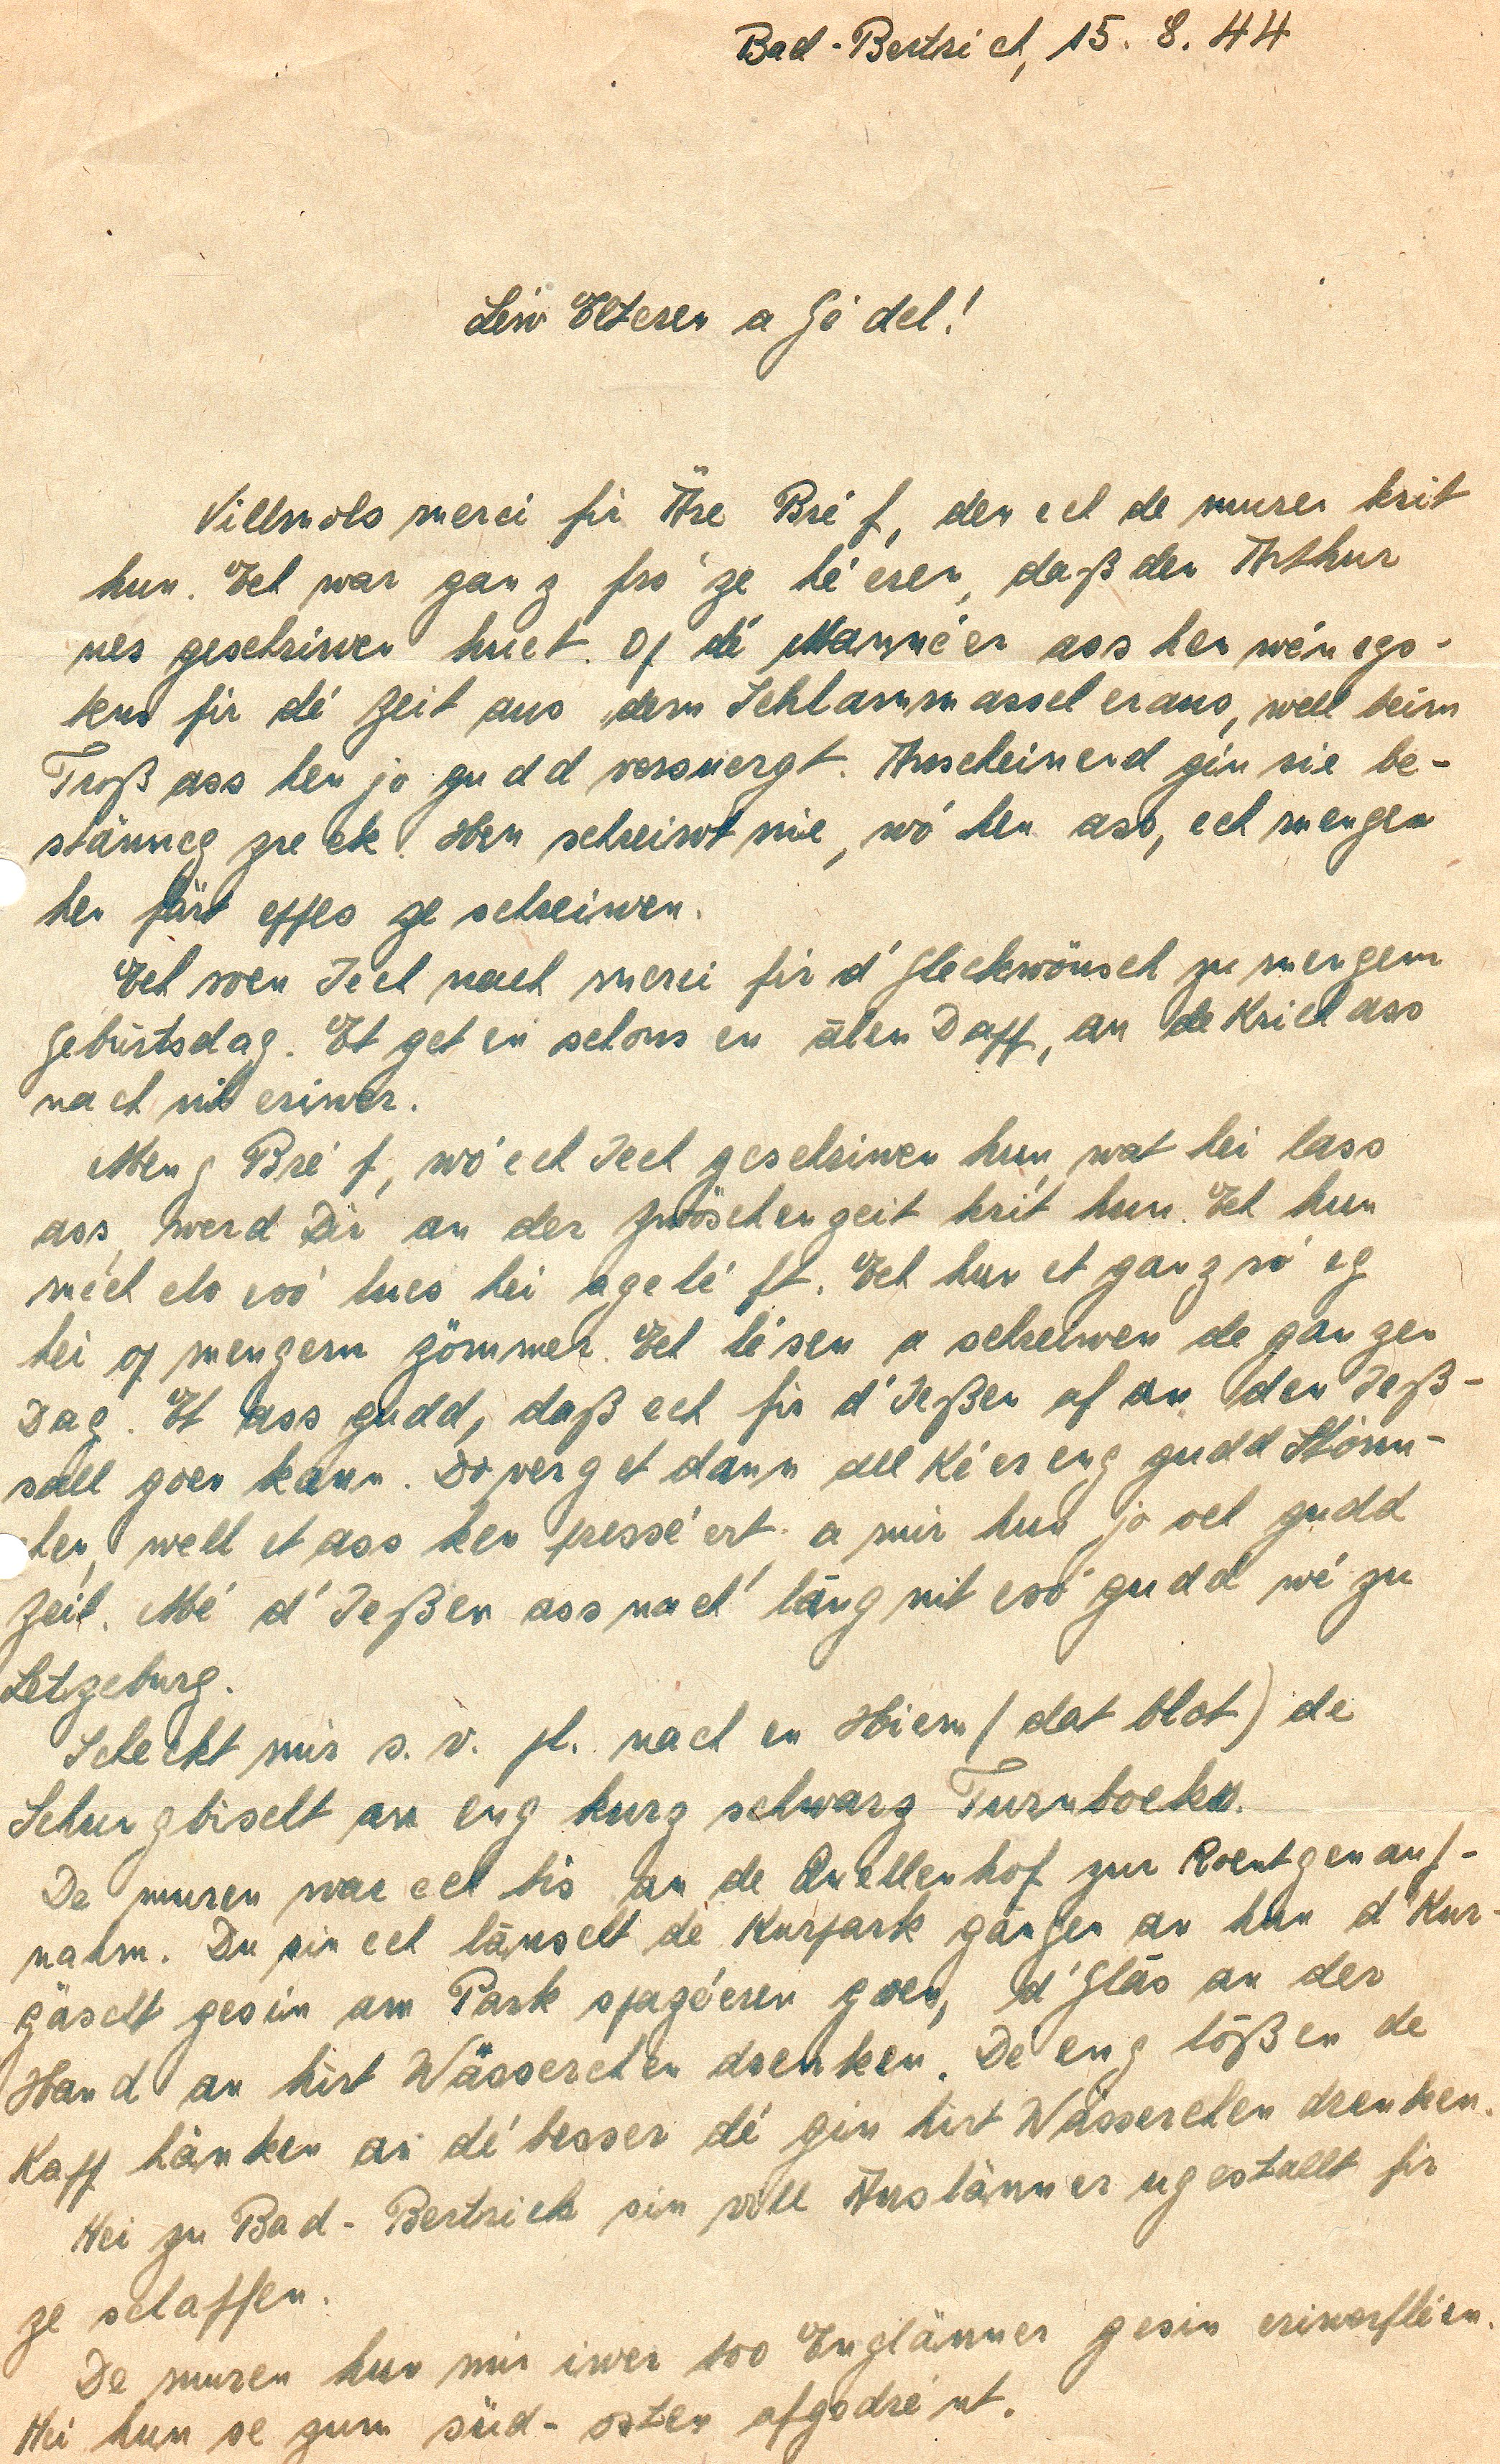 Bad-Bertrich, 15. 8. 44
Léiw Elteren a Gédel!
Villmols merci fir Äre Bréf, den ech de muren krit
hun. Ech war ganz fro' ze hé'eren, daß den Arthur
nes geschriwen huet. Of dé Manné'er ass hen wé'negs-
tens fir dé Zeit aus dem Schlammassel eraus, well beim
Troß ass hen jo gudd versuergt. Anscheinend gin sie be-
stänneg zreck. Hen schreiwt nie, wó hen ass, ech mengen
hen färt effes ze schreiwen.
Ech soen Iech nach merci fir d'Gleckwönsch zu mengem
Gebūrtsdag. Et get en schons en ālen Daff, an de Krich ass
nach nit eriwer.
Meng Bré'f, wó ech Iech geschriwen hun, wat hei lass
ass, werd Dir an der Zwöschenzeit krit hun. Ech hun
méch elo esó lues hei agelé'ft. Ech hun et ganz ró'eg
hei of mengem Zömmer. Ech lé'sen a schreiwen de ganzen
Dag. Et ass gudd, daß ech fir d'Ießen of an den Ieß-
sall goen kann. Do verget dann all Ké'er eng gudd Stönn-
chen, well et ass ken presse'ert. a mir hun jo och gudd
Zeit. Mé d'Ießen ass nach läng nit esó gudd wé zu
Letzeburg.
Scheckt mir s. v. pl. nach en Hiem (dat blot) de
Schungbischt an eng kurz schwarz Turnbocks.
De muren war ech bis an de Quellenhof zur Roentgenauf-
nahm. Du sin ech länscht de Kurpark gangen an hun d'Kur-
gäscht gesin am Park spazé'eren goen, d'Glās an der
Hand an hirt Wässerchen drenken. Dé eng lößen de
Kapp hänken an dé besser dé gin hirt Wässerchen drenken.
Hei zu Bad-Bertrich sin vill Auslänner ugestallt fir
ze schaffen.
De muren hun mir iwer 100 Englänner gesin eriwerfléien.
Hei hun se zum süd-osten ofgedré'nt.